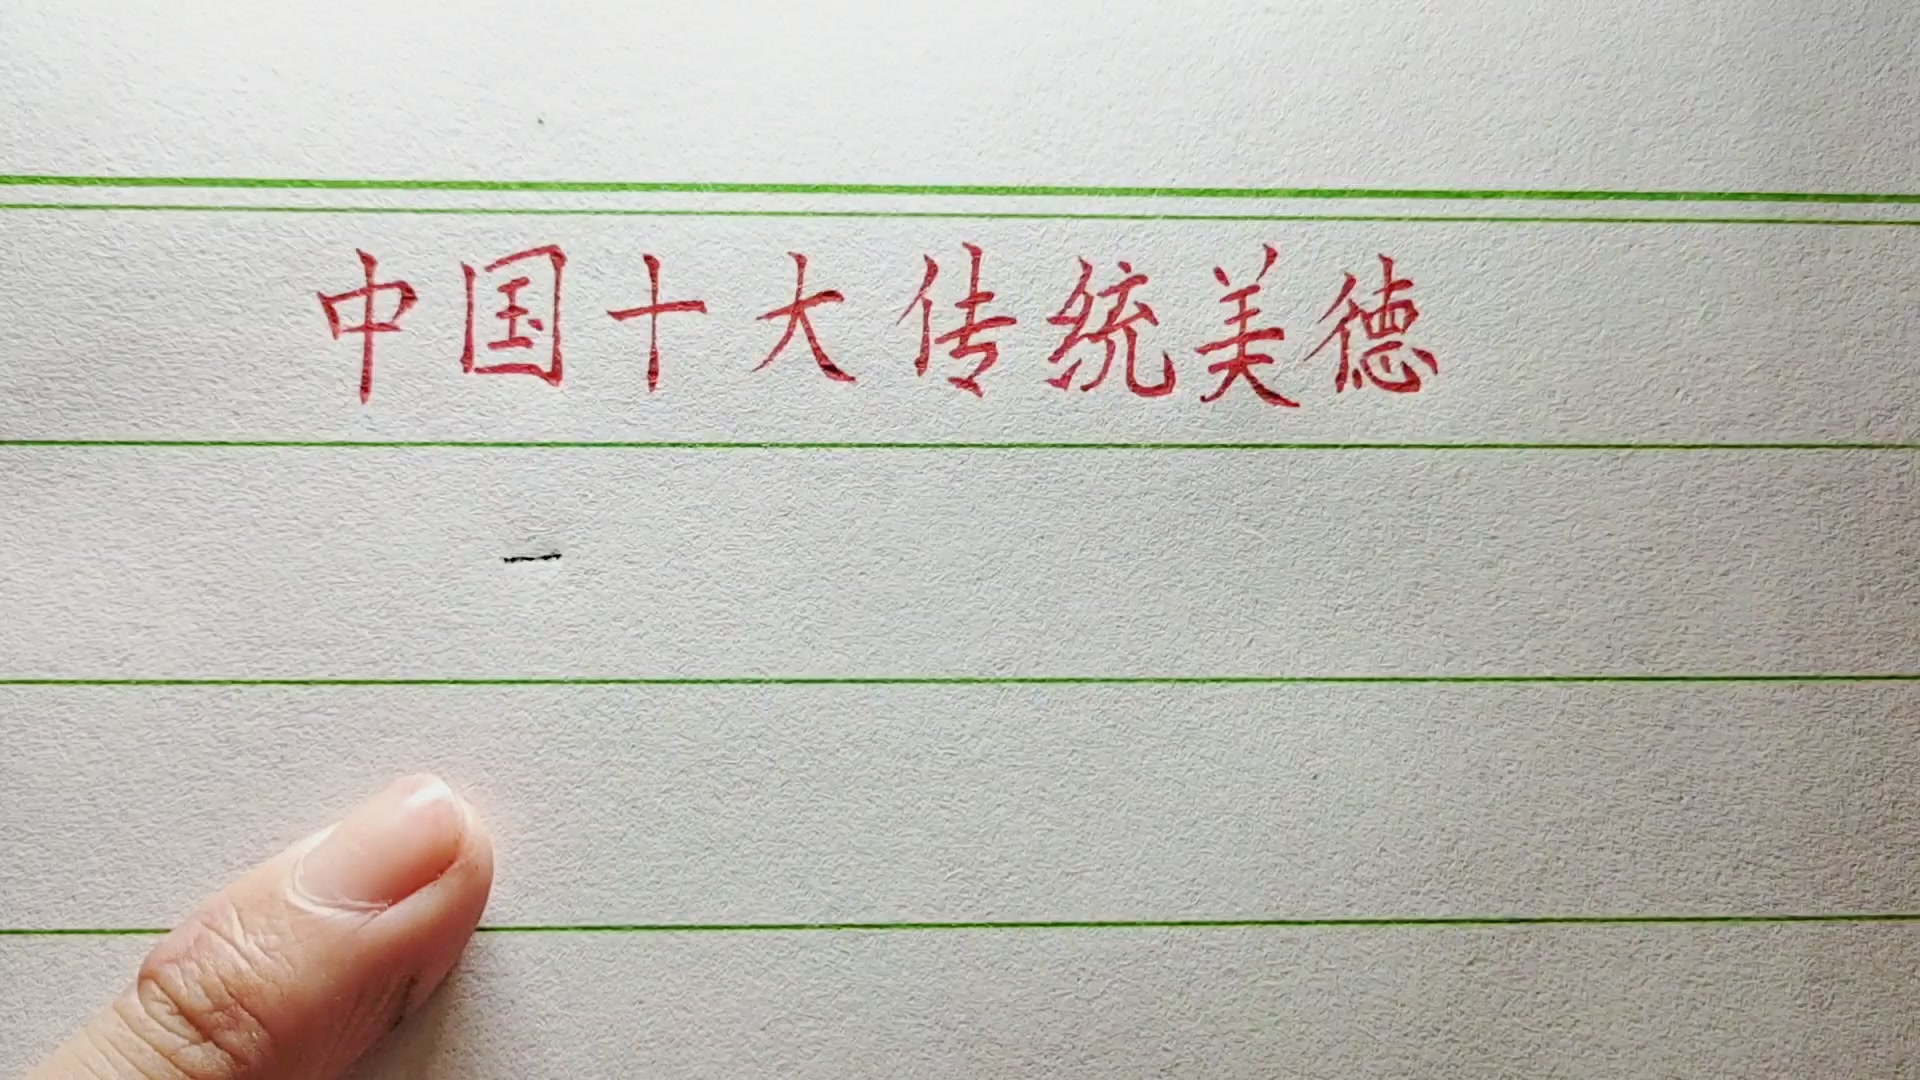 中国十大传统美德
一